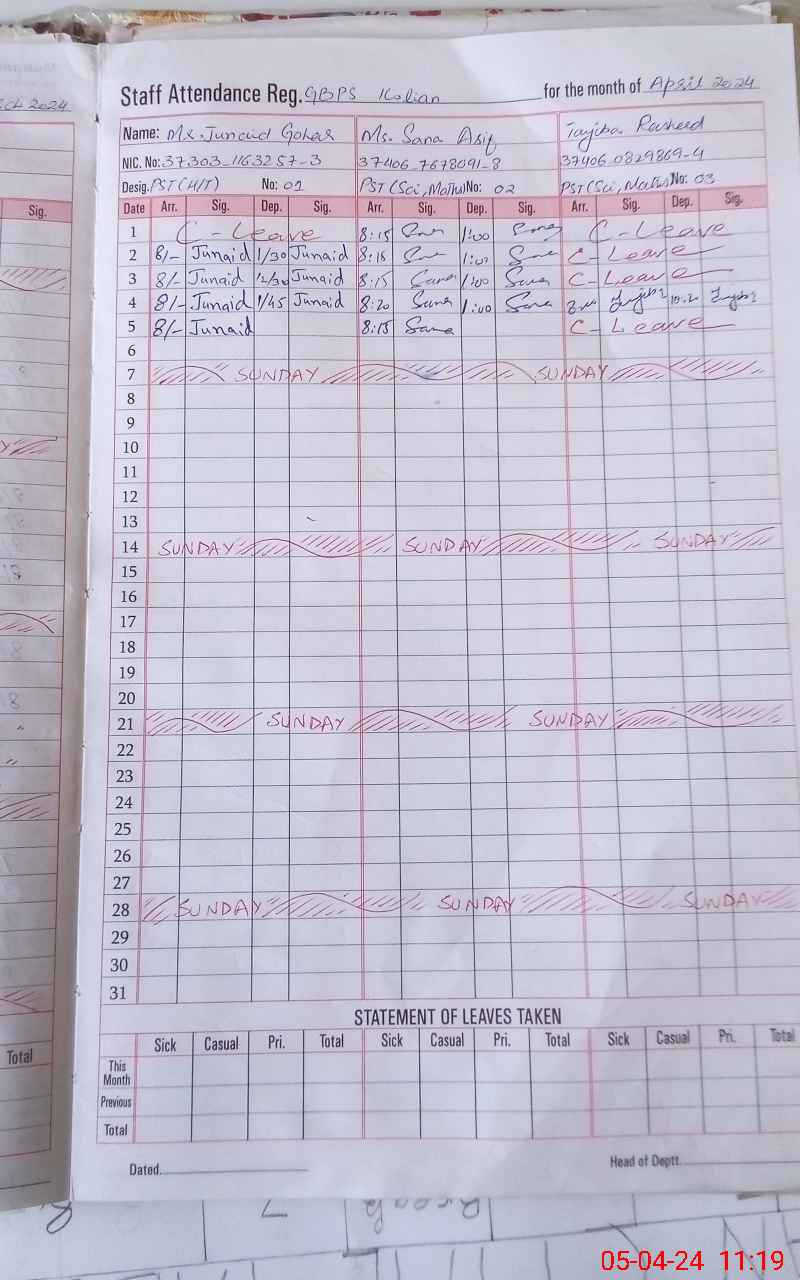 ch 2024
Staff Attendance Reg. GBPS Kolian for the month of April 2024
Name: Mr. Junaid Gohar Ms. Sana Asif Tayiba Rasheed
NIC. No: 37303-1163257-3 37406-7678091-8 37406-0829869-4
Desig. PST(H/T) No: 01 PST(Sci, Maths) No: 02 PST(Sci, Maths) No: 03
Sig. Date Arr. Sig. Dep. Sig. Arr. Sig. Dep. Sig. Arr. Sig. Dep. Sig.
1 C-Leave 8:15 1:00 C-Leave
2 8/- Junaid 1/30 Junaid 8:15 1:00 C-Leave
3 8/- Junaid 12/30 Junaid 8:15 Sana 1:00 Sana C-Leave
4 8/- Junaid 1/45 Junaid 8:20 Sana 1:00 Sana
5 8/- Junaid 8:15 Sana C-Leave
6
7 SUNDAY SUNDAY
8
9
10
11
12
13
14 SUNDAY SUNDAY SUNDAY
15
16
17
18
19
20
21 SUNDAY SUNDAY
22
23
24
25
26
27
28 SUNDAY SUNDAY SUNDAY
29
30
31
STATEMENT OF LEAVES TAKEN
Sick Casual Pri. Total Sick Casual Pri. Total Sick Casual Pri. Total
Total This Month
Previous
Total
Dated. Head of Deptt.
05-04-24 11:19